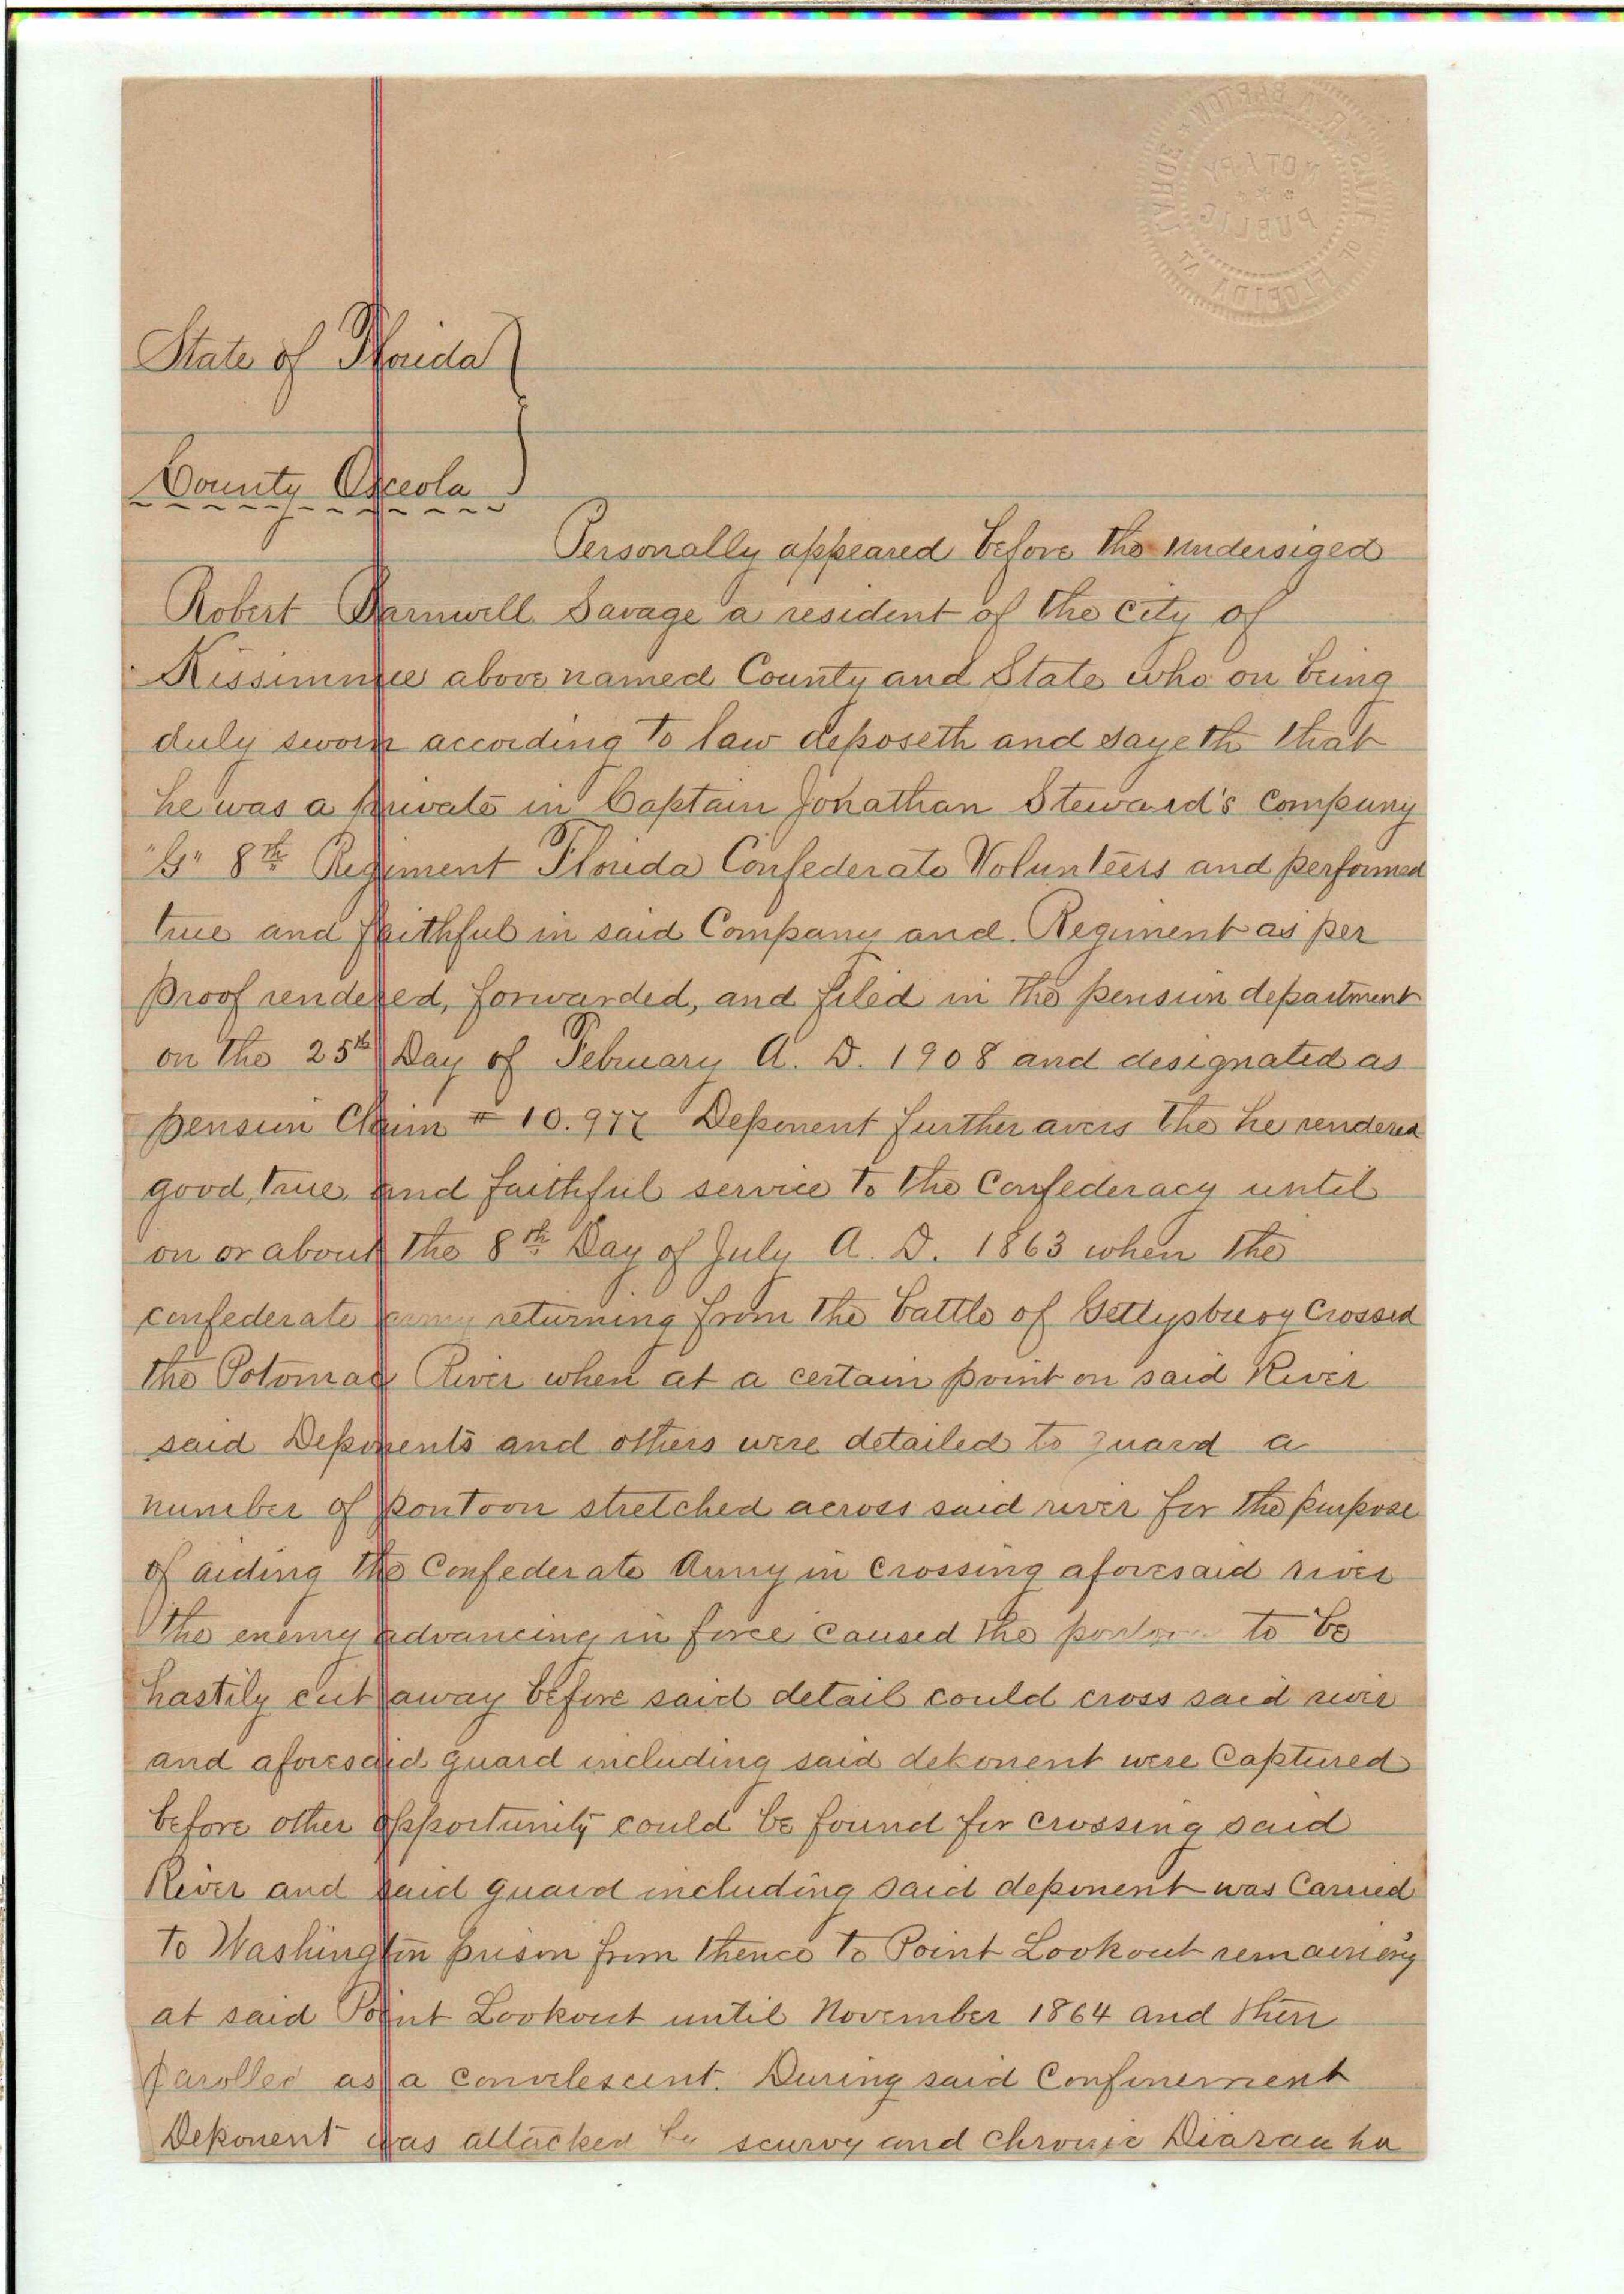 R. A. BARTOW
NOTARY
PUBLIC
STATE OF FLORIDA AT LARGE
State of Florida
County Osceola
Personally appeared before the undersiged
Robert Barnwell Savage a resident of the city of
Kissimmee above named County and State who on being
duly sworn according to law deposeth and sayeth that
he was a private in Captain Jonathan Steward's Company
"G" 8th Regiment Florida Confederate Volunteers and performed
true and faithful in said Company and Regiment as per
proof rendered, forwarded, and filed in the pension department
on the 25th Day of February A. D. 1908 and designated as
pension Claim # 10.977 Deponent further avers the he rendered
good, true, and faithful service to the Confederacy until
on or about the 8th Day of July A. D. 1863 when the
confederate army returning from the battle of Gettysburg Crossed
the Potomac River when at a certain point on said River
said Deponents and others were detailed to guard a
number of pontoon stretched across said river for the purpose
of aiding the Confederate Army in Crossing aforesaid river
the enemy advancing in force caused the pontoon to be
hastily cut away before said detail could cross said river
and aforesaid guard including said deponent were Captured
before other opportunity could be found for crossing said
River and said guard including said deponent was Carried
to Washington prison from thence to Point Lookout remaining
at said Point Lookout until November 1864 and then
parolled as a convelescent. During said Confinement
Deponent was attacked by scurvy and Chronic Diaraaha